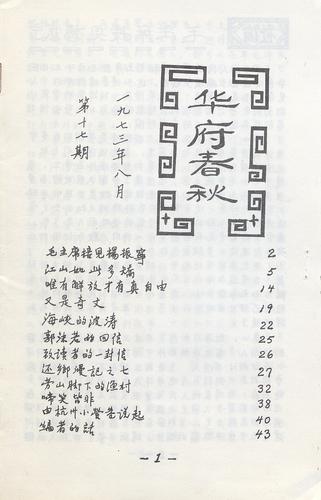 华府春秋
一九七三年八月
第十七期
毛主席接见楊振寧 2
江山如此多嬌 5
唯有解放才有真自由 14
又是奇文 19
海峡的波涛 22
郭沫若的回信 25
致读者的一封信 26
还鄉漫記之七 27
劳山脚下的渔村 32
啼笑皆非 38
由杭州小髮辫說起 40
编者的話 43
- 1 -